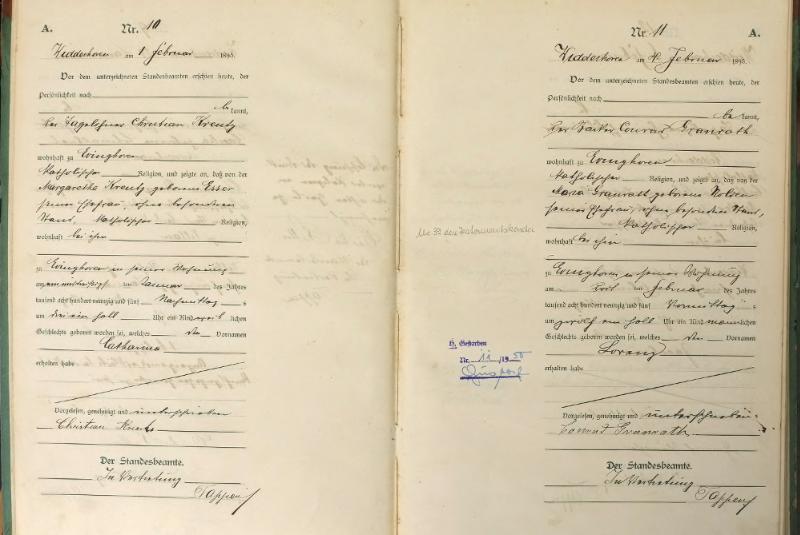 A. Nr. 10
Widdeshoven am 1 Februar 1895.
Vor dem unterzeichneten Standesbeamten erschien heute, der
Persönlichkeit nach
be kannt,
der Tagelöhner Christian Kreutz
wohnhaft zu Evinghoven
katholischer Religion, und zeigte an, daß von der
Margarethe Kreutz geborene Esser
seiner Ehefrau, ohne besonderen
Stand, katholischer Religion,
wohnhaft bei ihm
zu Evinghoven in seiner Wohnung
am Januar des Jahres
tausend acht hundert neunzig und fünf Nachmittag s
um drei ein halb Uhr ein Kind weib lichen
Geschlechts geboren worden sei, welches den Vornamen
Catharina
erhalten habe
Vorgelesen, genehmigt und unterschrieben
Christian Kreutz
Der Standesbeamte.
In Vertretung
Nr. 11 A.
Widdeshoven am 4 Februar 1895.
Vor dem unterzeichneten Standesbeamten erschien heute, der
Persönlichkeit nach
be kannt,
der Conrad Granrath
wohnhaft zu Evinghoven
katholischer Religion, und zeigte an, daß von der
Granrath geborene
seiner Ehefrau, ohne besonderen Stand,
katholischer Religion,
wohnhaft bei ihm
zu Evinghoven in seiner Wohnung
am Februar des Jahres
tausend acht hundert neunzig und fünf Vormittag s
um zwölf ein halb Uhr ein Kind männlichen
Geschlechts geboren worden sei, welches den Vornamen
Lorenz
erhalten habe
Vorgelesen, genehmigt und unterschrieben
Conrad Granrath
Der Standesbeamte.
In Vertretung
Gestorben
Nr.